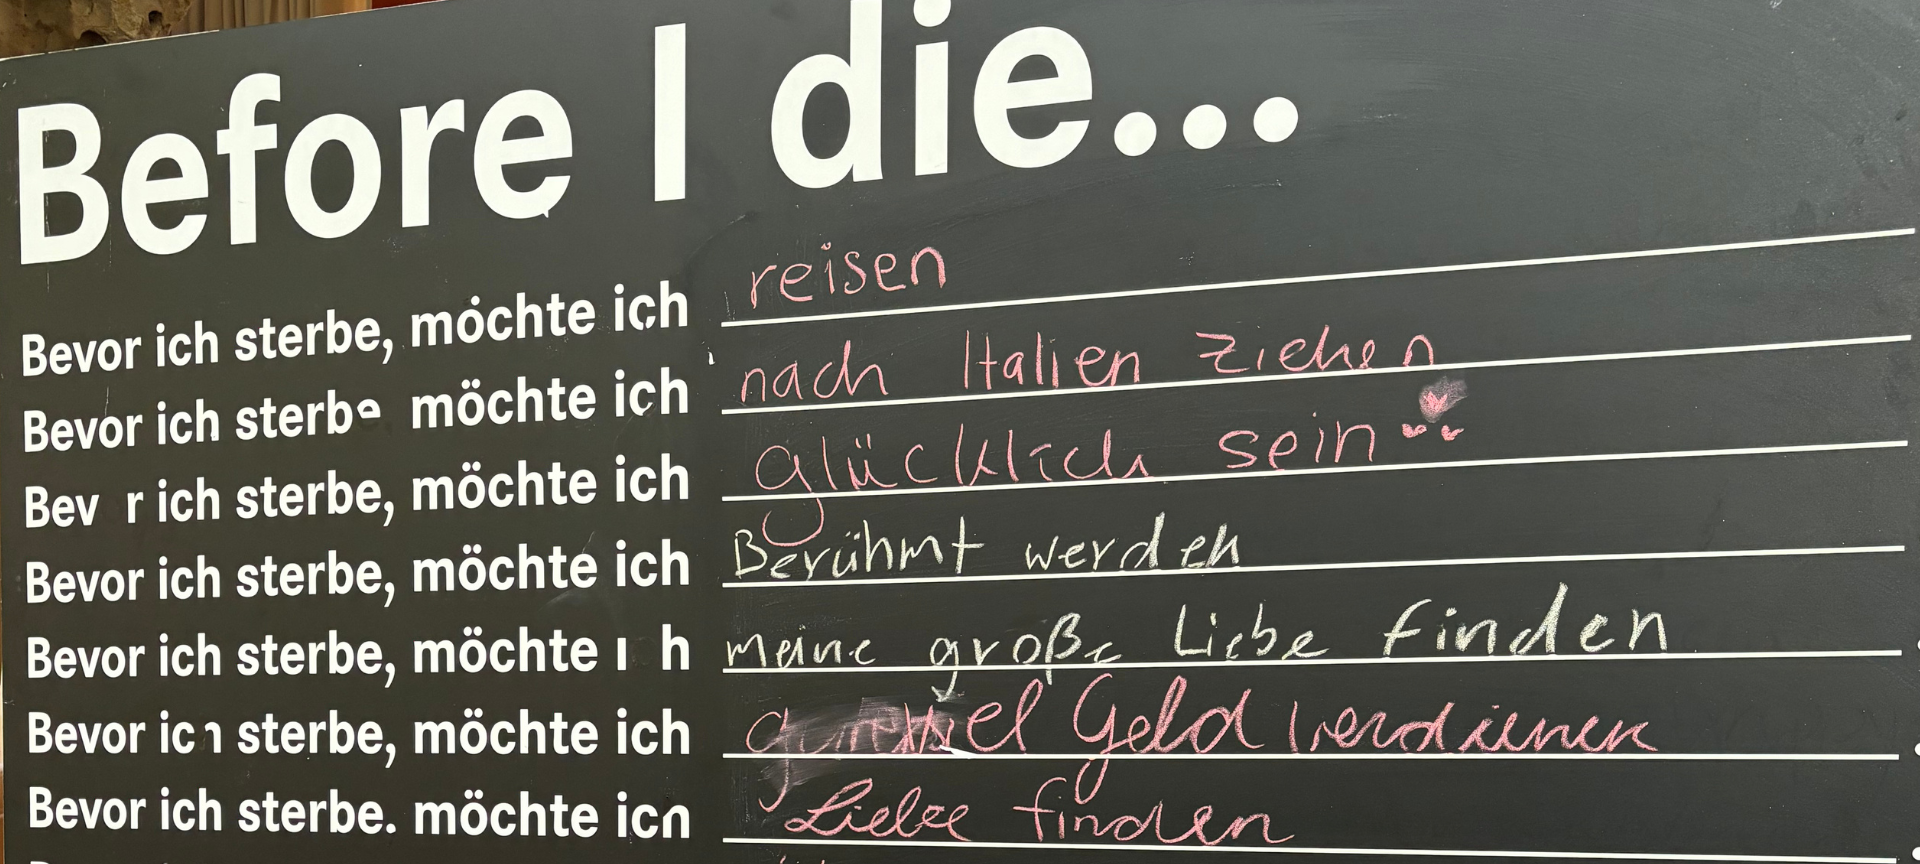 Before I die...
Bevor ich sterbe, möchte ich reisen
Bevor ich sterbe möchte ich nach Italien ziehen
Bev r ich sterbe, möchte ich glücklich sein
Bevor ich sterbe, möchte ich Berühmt werden
Bevor ich sterbe, möchte ich meine große Liebe finden
Bevor ich sterbe, möchte ich Geld verdienen
Bevor ich sterbe, möchte ich Liebe finden